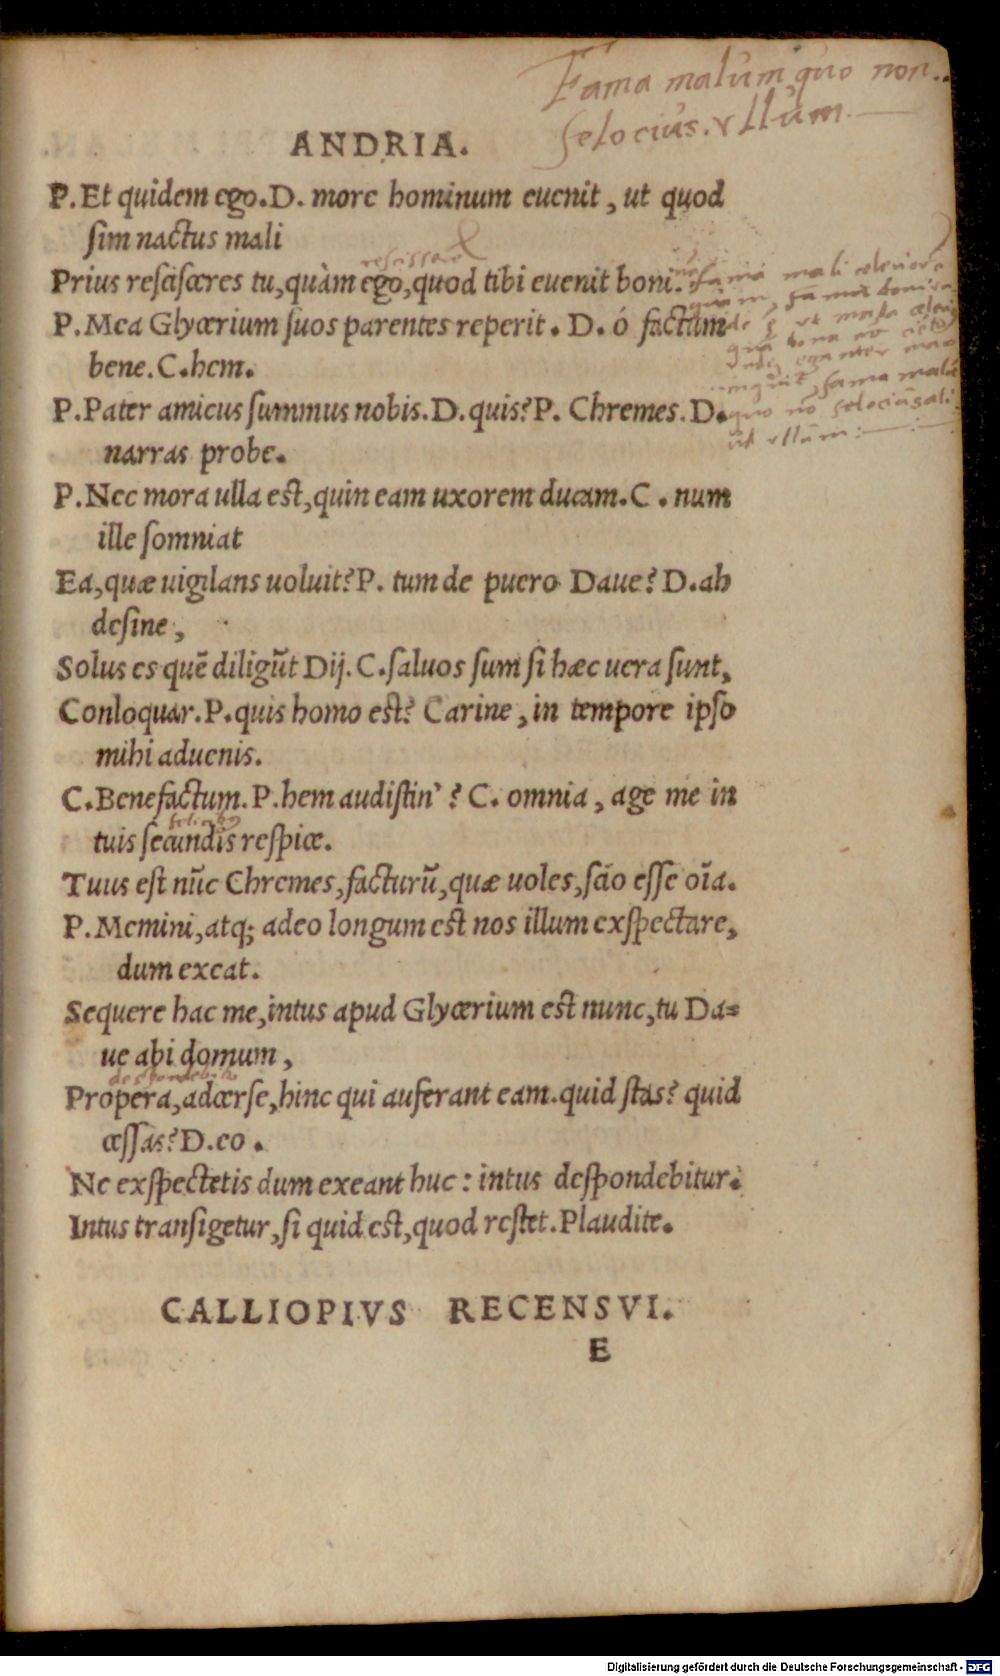 Fama malum quo non
velocius vllum
ANDRIA.
P. Et quidem ego. D. more hominum euenit, ut quod
sim nactus mali
resciscere
Prius rescisceres tu, quàm ego, quod tibi euenit boni.
fama mali celerior
quàm, fama boni
P. Mea Glycerium suos parentes reperit. D. ó factum
bene. C. hem.
inquit, fama malū
P. Pater amicus summus nobis. D. quis? P. Chremes. D.
quo nō velocius ali
ud vllum
narras probe.
P. Nec mora ulla est, quin eam uxorem ducam. C. num
ille somniat
Ea, quæ uigilans uoluit? P. tum de puero Daue? D. ah
desine,
Solus es quē diligūt Dij. C. saluos sum si hæc uera sunt,
Conloquar. P. quis homo est? Carine, in tempore ipso
mihi aduenis.
C. Benefactum. P. hem audistin'? C. omnia, age me in
tuis secundis respice.
Tuus est nūc Chremes, facturū, quæ uoles, scio esse oīa.
P. Memini, atq; adeo longum est nos illum exspectare,
dum exeat.
Sequere hac me, intus apud Glycerium est nunc, tu Da=
ue abi domum,
Propera, adcerse, hinc qui auferant eam. quid stas? quid
cessas? D. eo.
Ne exspectetis dum exeant huc: intus despondebitur.
Intus transigetur, si quid est, quod restet. Plaudite.
CALLIOPIVS RECENSVI.
E
Digitalisierung gefördert durch die Deutsche Forschungsgemeinschaft - DFG